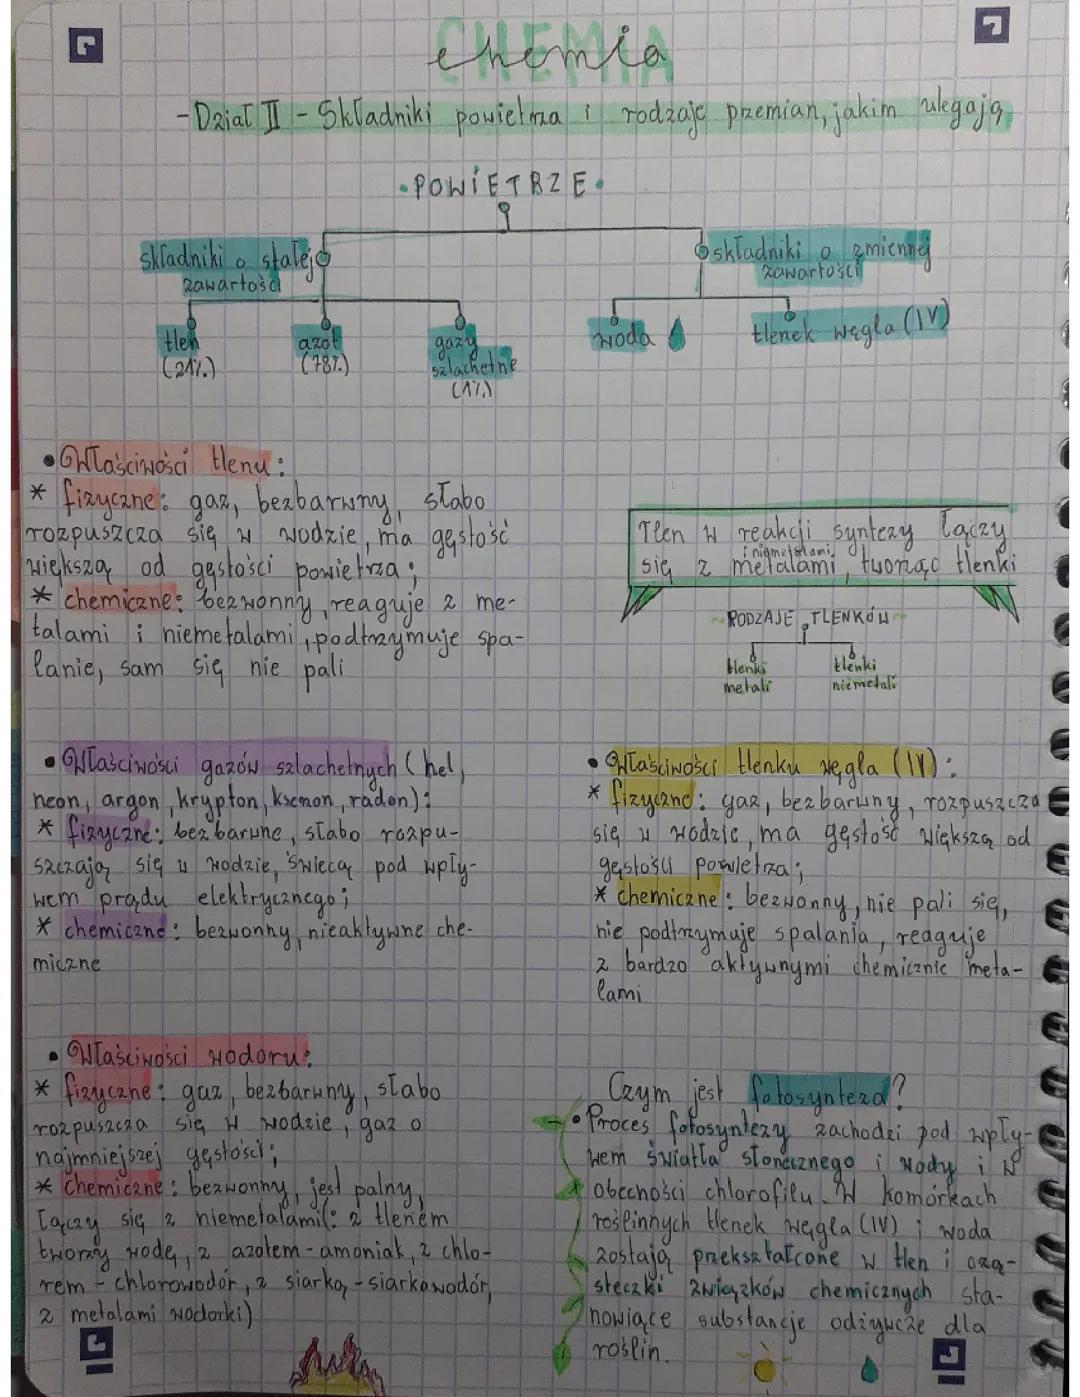 CHEMIA
chemia
- Dział II - Składniki powietrza i rodzaje przemian, jakim ulegają
• POWIETRZE •
składniki o stałej
zawartości
składniki o zmiennej
zawartości
tlen
(21%)
azot
(78%)
gazy
szlachetne
(1%)
woda
tlenek węgla (IV)
• Właściwości tlenu:
* fizyczne: gaz, bezbarwny, słabo
rozpuszcza się w wodzie, ma gęstość
większą od gęstości powietrza;
* chemiczne: bezwonny, reaguje z me-
talami i niemetalami, podtrzymuje spa-
lanie, sam się nie pali
Tlen w reakcji syntezy łączy
się z metalami i niemetalami, tworząc tlenki
~ RODZAJE TLENKÓW ~
tlenki
metali
tlenki
niemetali
• Właściwości gazów szlachetnych (hel,
neon, argon, krypton, ksenon, radon):
* fizyczne: bezbarwne, słabo rozpu-
szczają się w wodzie, świecą pod wpły-
wem prądu elektrycznego;
* chemiczne: bezwonny, nieaktywne che-
miczne
• Właściwości tlenku węgla (IV):
* fizyczne: gaz, bezbarwny, rozpuszcza
się w wodzie, ma gęstość większą od
gęstości powietrza;
* chemiczne: bezwonny, nie pali się,
nie podtrzymuje spalania, reaguje
z bardzo aktywnymi chemicznie meta-
lami
• Właściwości wodoru:
* fizyczne: gaz, bezbarwny, słabo
rozpuszcza się w wodzie, gaz o
najmniejszej gęstości;
* chemiczne: bezwonny, jest palny,
łączy się z niemetalami (: z tlenem
tworzy wodę, z azotem - amoniak, z chlo-
rem - chlorowodór, z siarką - siarkowodór,
z metalami wodorki)
Czym jest fotosynteza?
• Proces fotosyntezy zachodzi pod wpły-
wem światła słonecznego i wody i w
obecności chlorofilu. W komórkach
roślinnych tlenek węgla (IV) i woda
zostają przekształcone w tlen i czą-
steczki związków chemicznych sta-
nowiące substancje odżywcze dla
roślin.